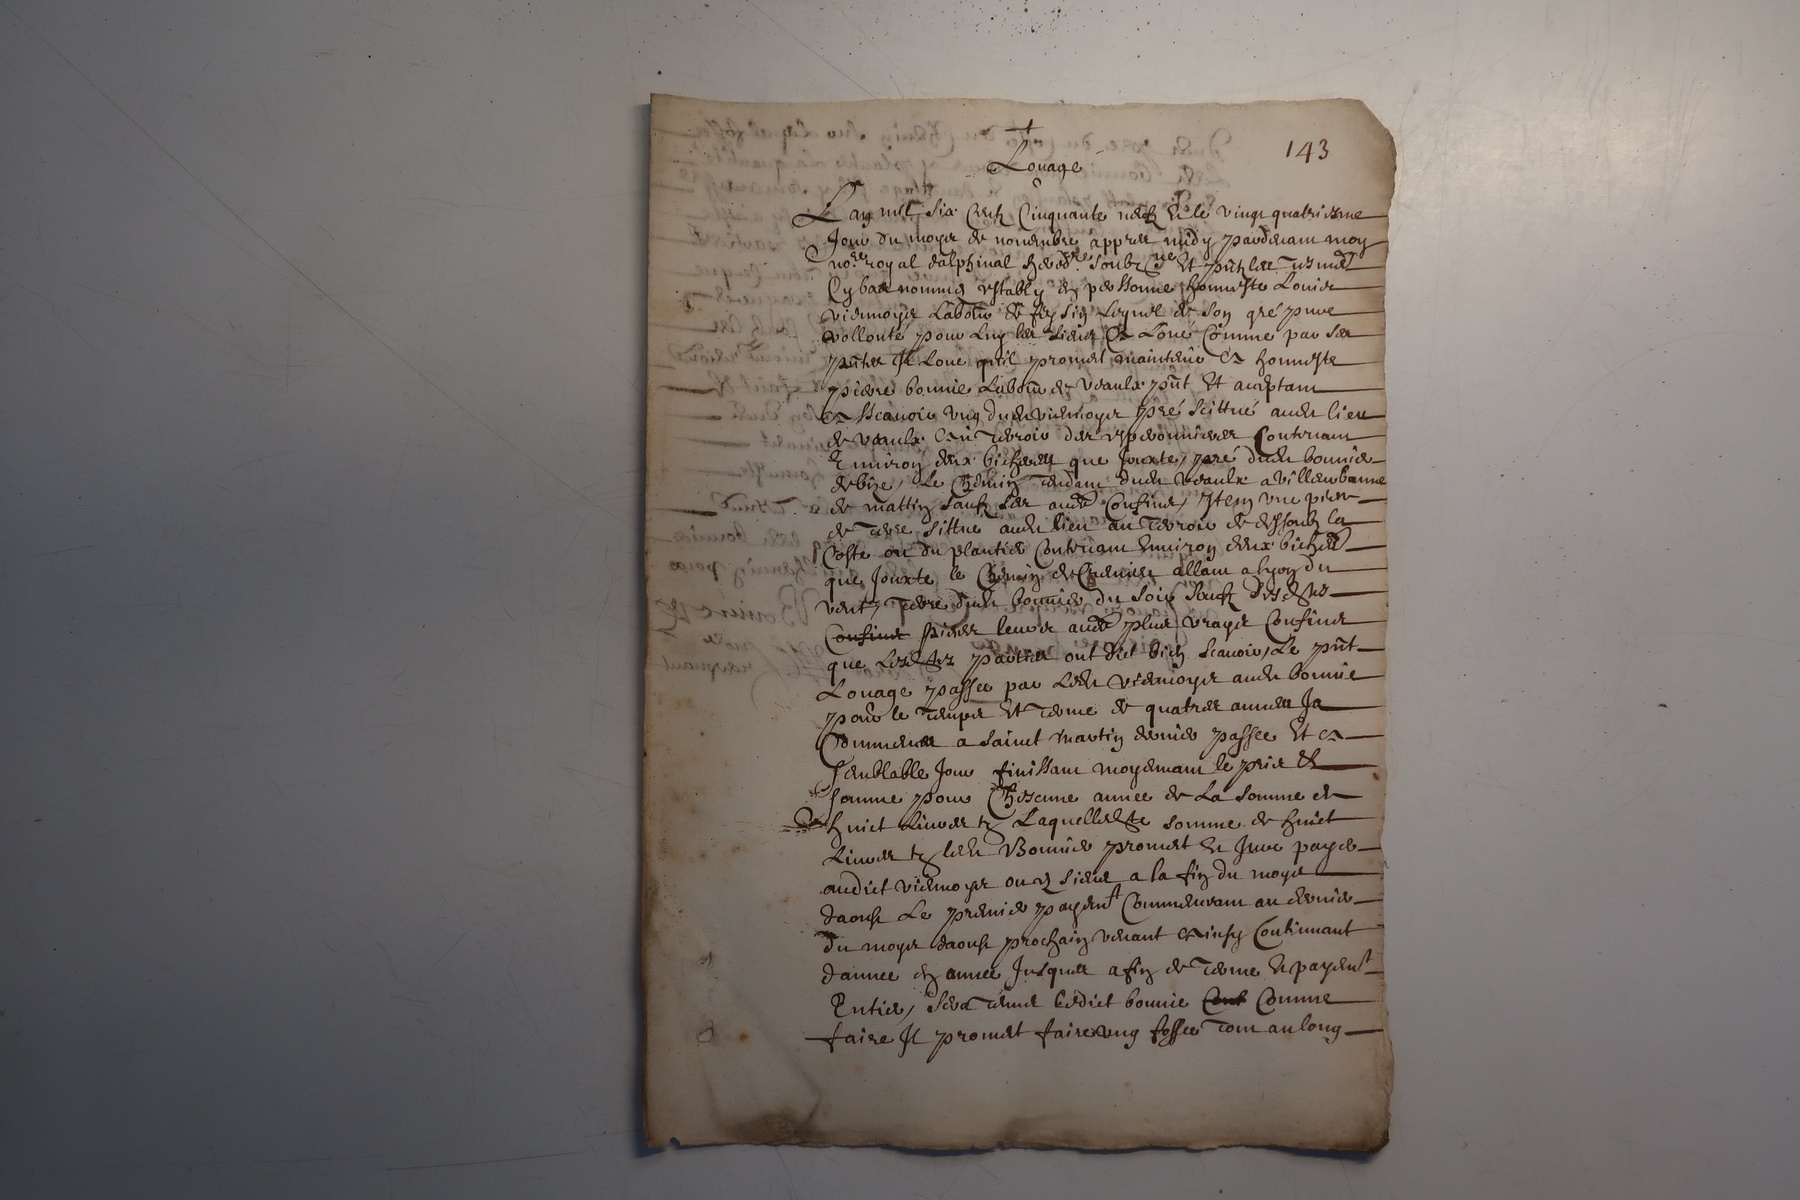 143
Louage
Lan mil six centz cinquante neufz et le vingt quatriesme
jour du moys de novembre appres midy pardevant moy
no.re royal dalphinal hered.re soubz.ne et pntz les tesmo 
cy bas nommes estably en personne honneste Louis
viermoys labour de leyssin lequel de son gré pure
vollonté pour luy les siens a loué comme par ses
pntes il loue quil promet maintenir a honneste
pierre bonnie labour de veaulx pnt et acceptant
a scavoir ung dudt viermoys pré scittué audt lieu
de veaulx et terroir des esperonnieres contenant
environ deux bicheres que jouxte pré dudt bonnie
de bize, le chemin tendant dudt veaulx a villeurbanne
de mattin sauf ses aud confins, Item une piece
de terre sittue audt lieu au terroir de dessoubz la
coste ou du plantier contenant environ deux bicher
que jouxte le chemin de cremieu allant a lyon du
vent, terre dudt bonnie du soir sauf desdtes
confins leurs aud plus vrays confins
que lesdtes parties ont dict bien scavoir, Le pnt
Louage passee par ledt viermoys audt bonnie
pour le temps et terme de quatres annees ja
commences a sainct martin dernier passee et a
semblable jour finissant moyennant le prix et
somme pour chescune annee de la somme de
huict livres tz laquelledte somme de huict
livres tz ledt Bonnie promet et jure payer
audict viermoys ou es siens a la fin du moys
daoust Le premier payent commencant au dernier
du moys daoust prochain venant et ainsy continuant
dannee en annee jusques a fin de terme et payent
entier, sera tenu ledict bonnie comme
faire Il promet faire ung fossee tout au long